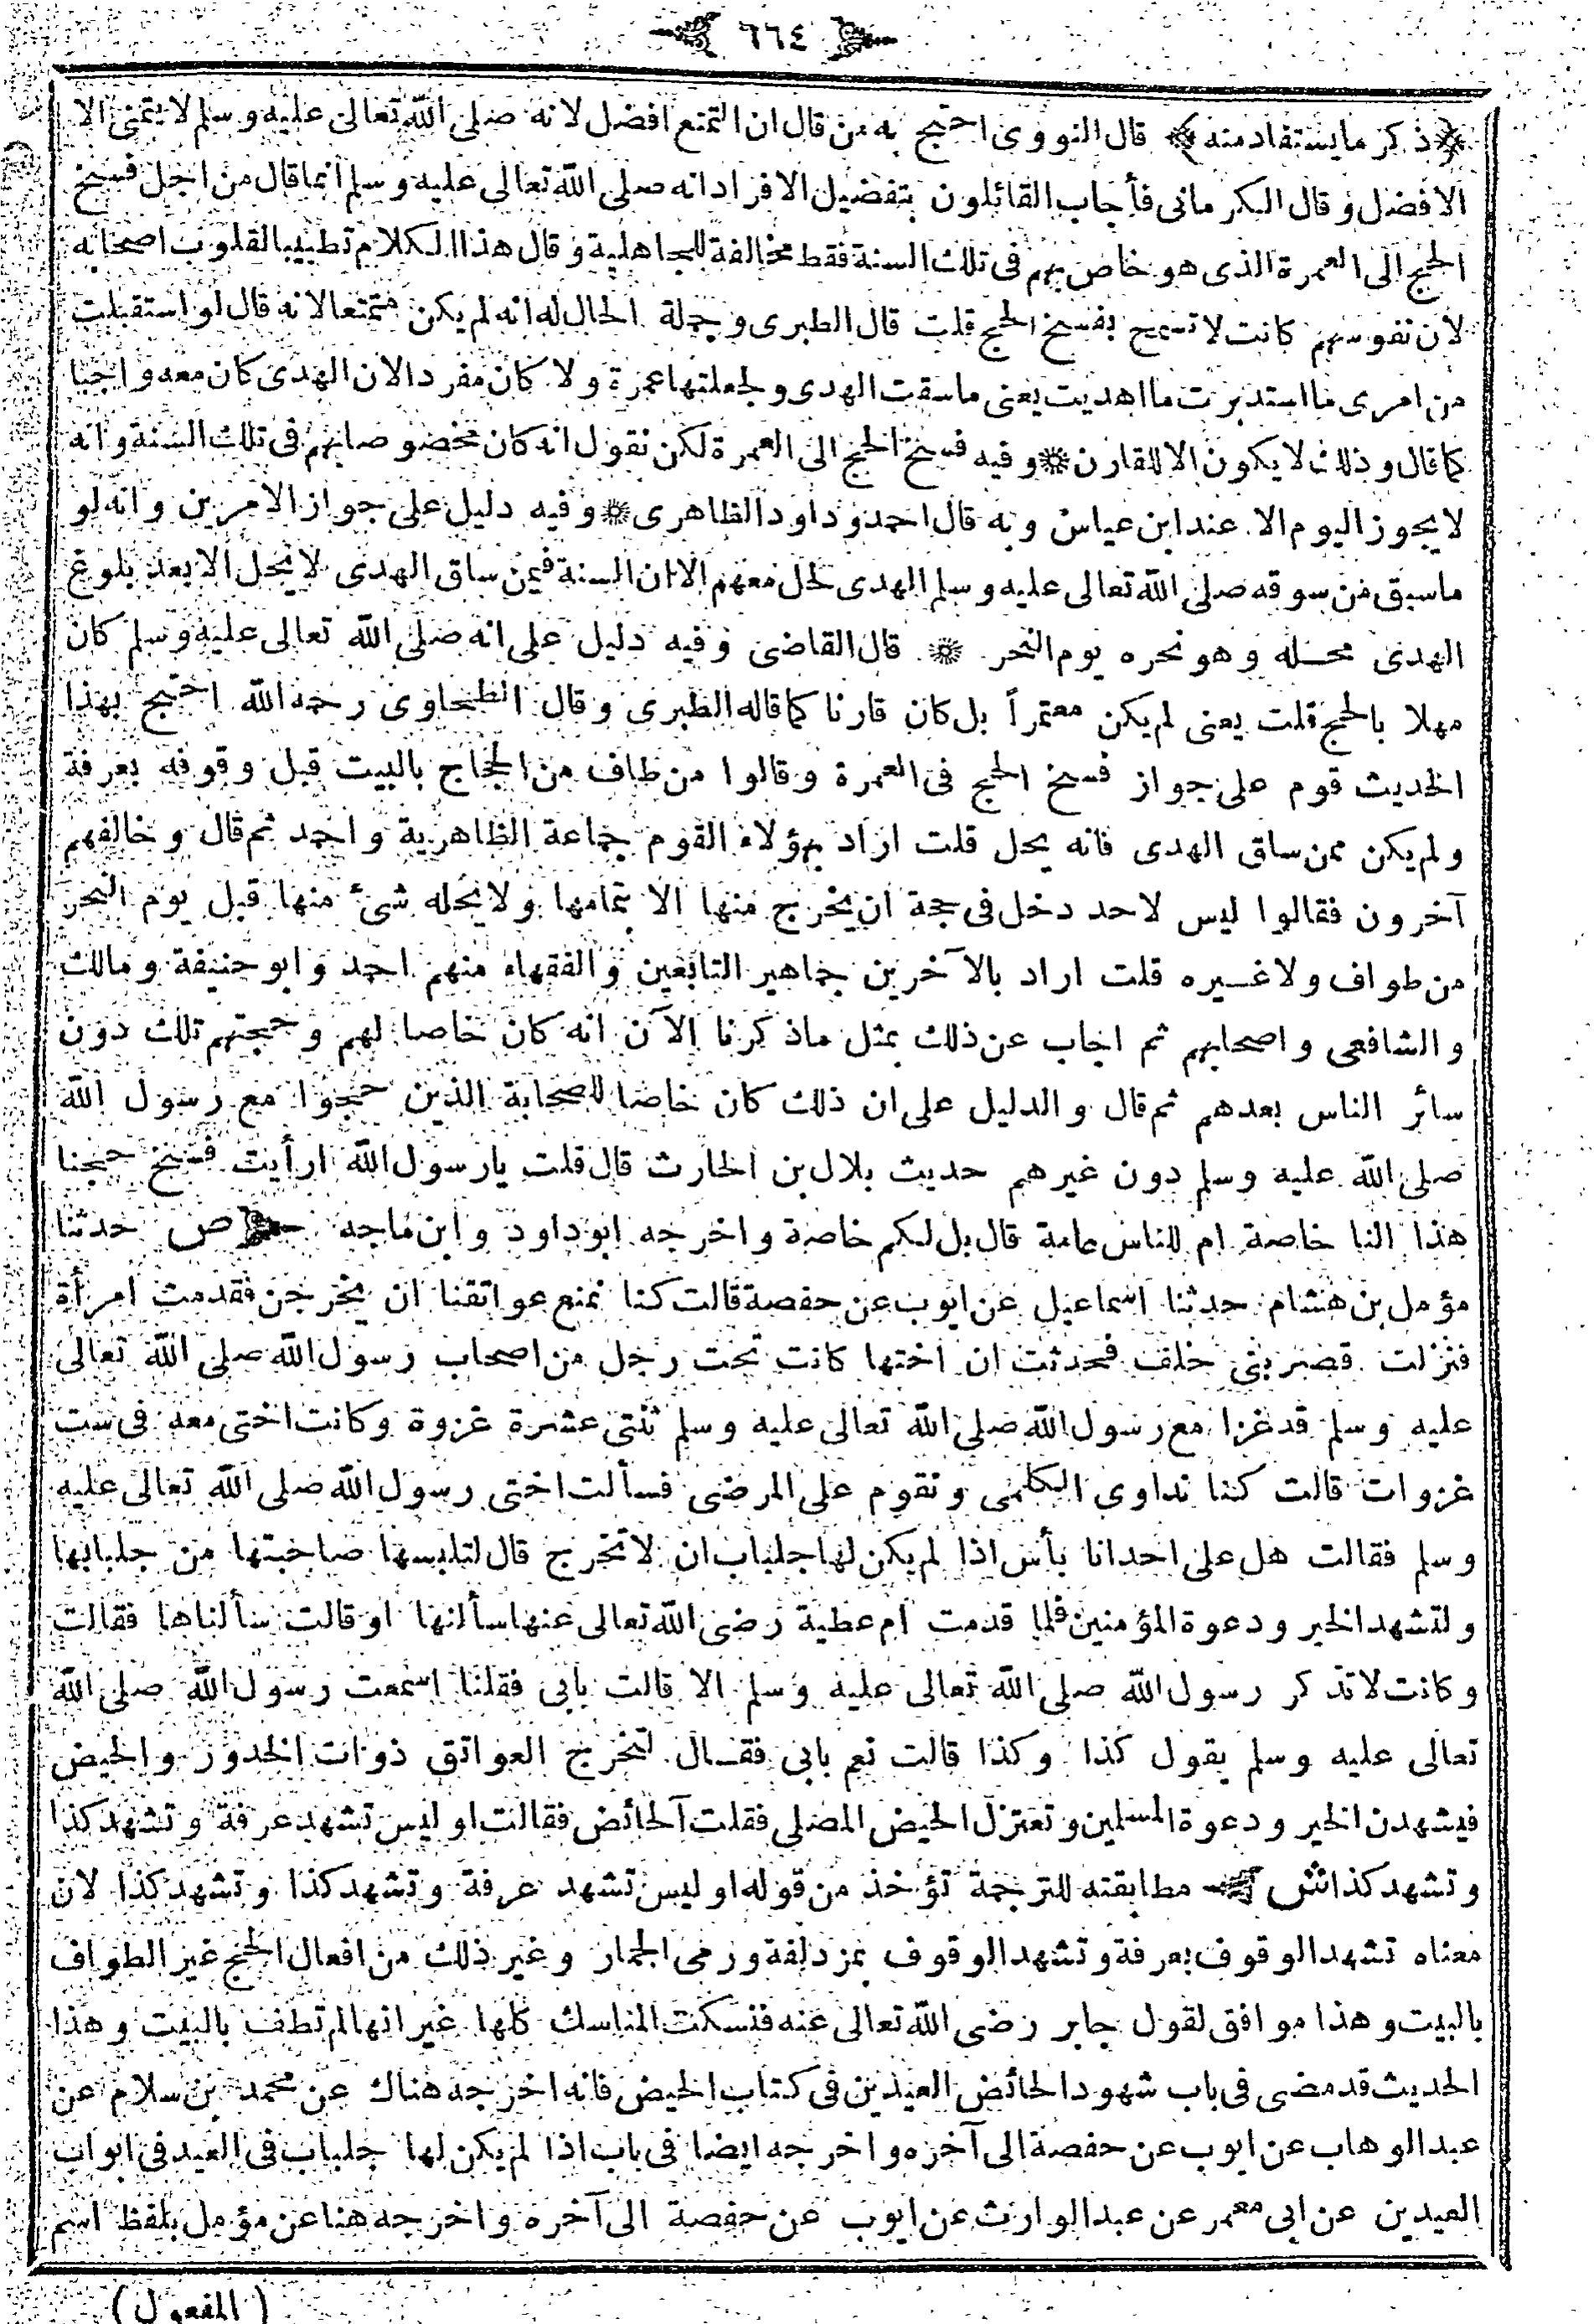 ٦٦٤
﴿ذكر مايستفاد منه﴾ قال النووى احتج به من قال ان التمتع افضل لانه صلى الله تعالى عليه وسلم لا يتمنى الا
الافضل وقال الكرمانى فأجاب القائلون بتفضيل الافراد انه صلى الله تعالى عليه وسلم انما قال من اجل فسخ
الحج الى العمرة الذى هو خاص بهم فى تلك السنة فقط مخالفة للجاهلية وقال هذا الكلام تطييبا لقلوب اصحابه
لان نفوسهم كانت لا تسمح بفسخ الحج قلت قال الطبرى وجملة الحال له انه لم يكن متمتعا لانه قال لو استقبلت
من امرى ما استدبرت ما اهديت يعنى ما سقت الهدى ولجعلتها عمرة ولا كان مفردا لان الهدى كان معه واجبا
كما قال وذلك لا يكون الا للقارن * وفيه فسخ الحج الى العمرة لكن نقول انه كان مخصوصا بهم فى تلك السنة وانه
لا يجوز اليوم الا عند ابن عباس وبه قال احمد وداود الظاهرى * وفيه دليل على جواز الامرين وانه لو
ماسبق من سوقه صلى الله تعالى عليه وسلم الهدى لحل معهم الا ان السنة فيمن ساق الهدى لا يحل الا بعد بلوغ
الهدى محله وهو نحره يوم النحر * قال القاضى وفيه دليل على انه صلى الله تعالى عليه وسلم كان
مهلا بالحج قلت يعنى لم يكن معتمراً بل كان قارنا كما قاله الطبرى وقال الطحاوى رحمه الله احتج بهذا
الحديث قوم على جواز فسخ الحج فى العمرة وقالوا من طاف من الحجاج بالبيت قبل وقوفه بعرفة
ولم يكن ممن ساق الهدى فانه يحل قلت اراد بهؤلاء القوم جماعة الظاهرية واحمد ثم قال وخالفهم
آخرون فقالوا ليس لاحد دخل فى حجة ان يخرج منها الا بتمامها ولا يحله شئ منها قبل يوم النحر
من طواف ولا غيره قلت اراد بالآخرين جماهير التابعين والفقهاء منهم احمد وابو حنيفة ومالك
والشافعى واصحابهم ثم اجاب عن ذلك بمثل ماذكرنا الآن انه كان خاصا لهم وحجتهم تلك دون
سائر الناس بعدهم ثم قال والدليل على ان ذلك كان خاصا للصحابة الذين حجوا مع رسول الله
صلى الله عليه وسلم دون غيرهم حديث بلال بن الحارث قال قلت يارسول الله ارأيت فسخ حجنا
هذا النا خاصة ام للناس عامة قال بل لكم خاصة واخرجه ابو داود وابن ماجه ص حدثنا
مؤمل بن هشام حدثنا اسماعيل عن ايوب عن حفصة قالت كنا نمنع عواتقنا ان يخرجن فقدمت امرأة
فنزلت قصر بنى خلف فحدثت ان اختها كانت تحت رجل من اصحاب رسول الله صلى الله تعالى
عليه وسلم قد غزا مع رسول الله صلى الله تعالى عليه وسلم ثنتى عشرة غزوة وكانت اختى معه فى ست
غزوات قالت كنا نداوى الكلمى ونقوم على المرضى فسألت اختى رسول الله صلى الله تعالى عليه
وسلم فقالت هل على احدانا بأس اذا لم يكن لها جلباب ان لا تخرج قال لتلبسها صاحبتها من جلبابها
ولتشهد الخير ودعوة المؤمنين فلما قدمت ام عطية رضى الله تعالى عنها سألنها او قالت سألناها فقالت
وكانت لا تذكر رسول الله صلى الله تعالى عليه وسلم الا قالت بابى فقلنا اسمعت رسول الله صلى الله
تعالى عليه وسلم يقول كذا وكذا قالت نعم بابى فقال لتخرج العواتق ذوات الخدور والحيض
فيشهدن الخير ودعوة المسلمين وتعتزل الحيض المصلى فقلت آلحائض فقالت او ليس تشهد عرفة وتشهد كذا
وتشهد كذا ش مطابقته للترجمة تؤخذ من قوله او ليس تشهد عرفة وتشهد كذا وتشهد كذا لان
معناه تشهد الوقوف بعرفة وتشهد الوقوف بمزدلفة ورمى الجمار وغير ذلك من افعال الحج غير الطواف
بالبيت وهذا موافق لقول جابر رضى الله تعالى عنه فنسكت المناسك كلها غير انها لم تطف بالبيت وهذا
الحديث قد مضى فى باب شهود الحائض العيدين فى كتاب الحيض فانه اخرجه هناك عن محمد بن سلام عن
عبد الوهاب عن ايوب عن حفصة الى آخره واخرجه ايضا فى باب اذا لم يكن لها جلباب فى العيد فى ابواب
العيدين عن ابى معمر عن عبد الوارث عن ايوب عن حفصة الى آخره واخرجه هنا عن مؤمل بلفظ اسم
(المفعول)